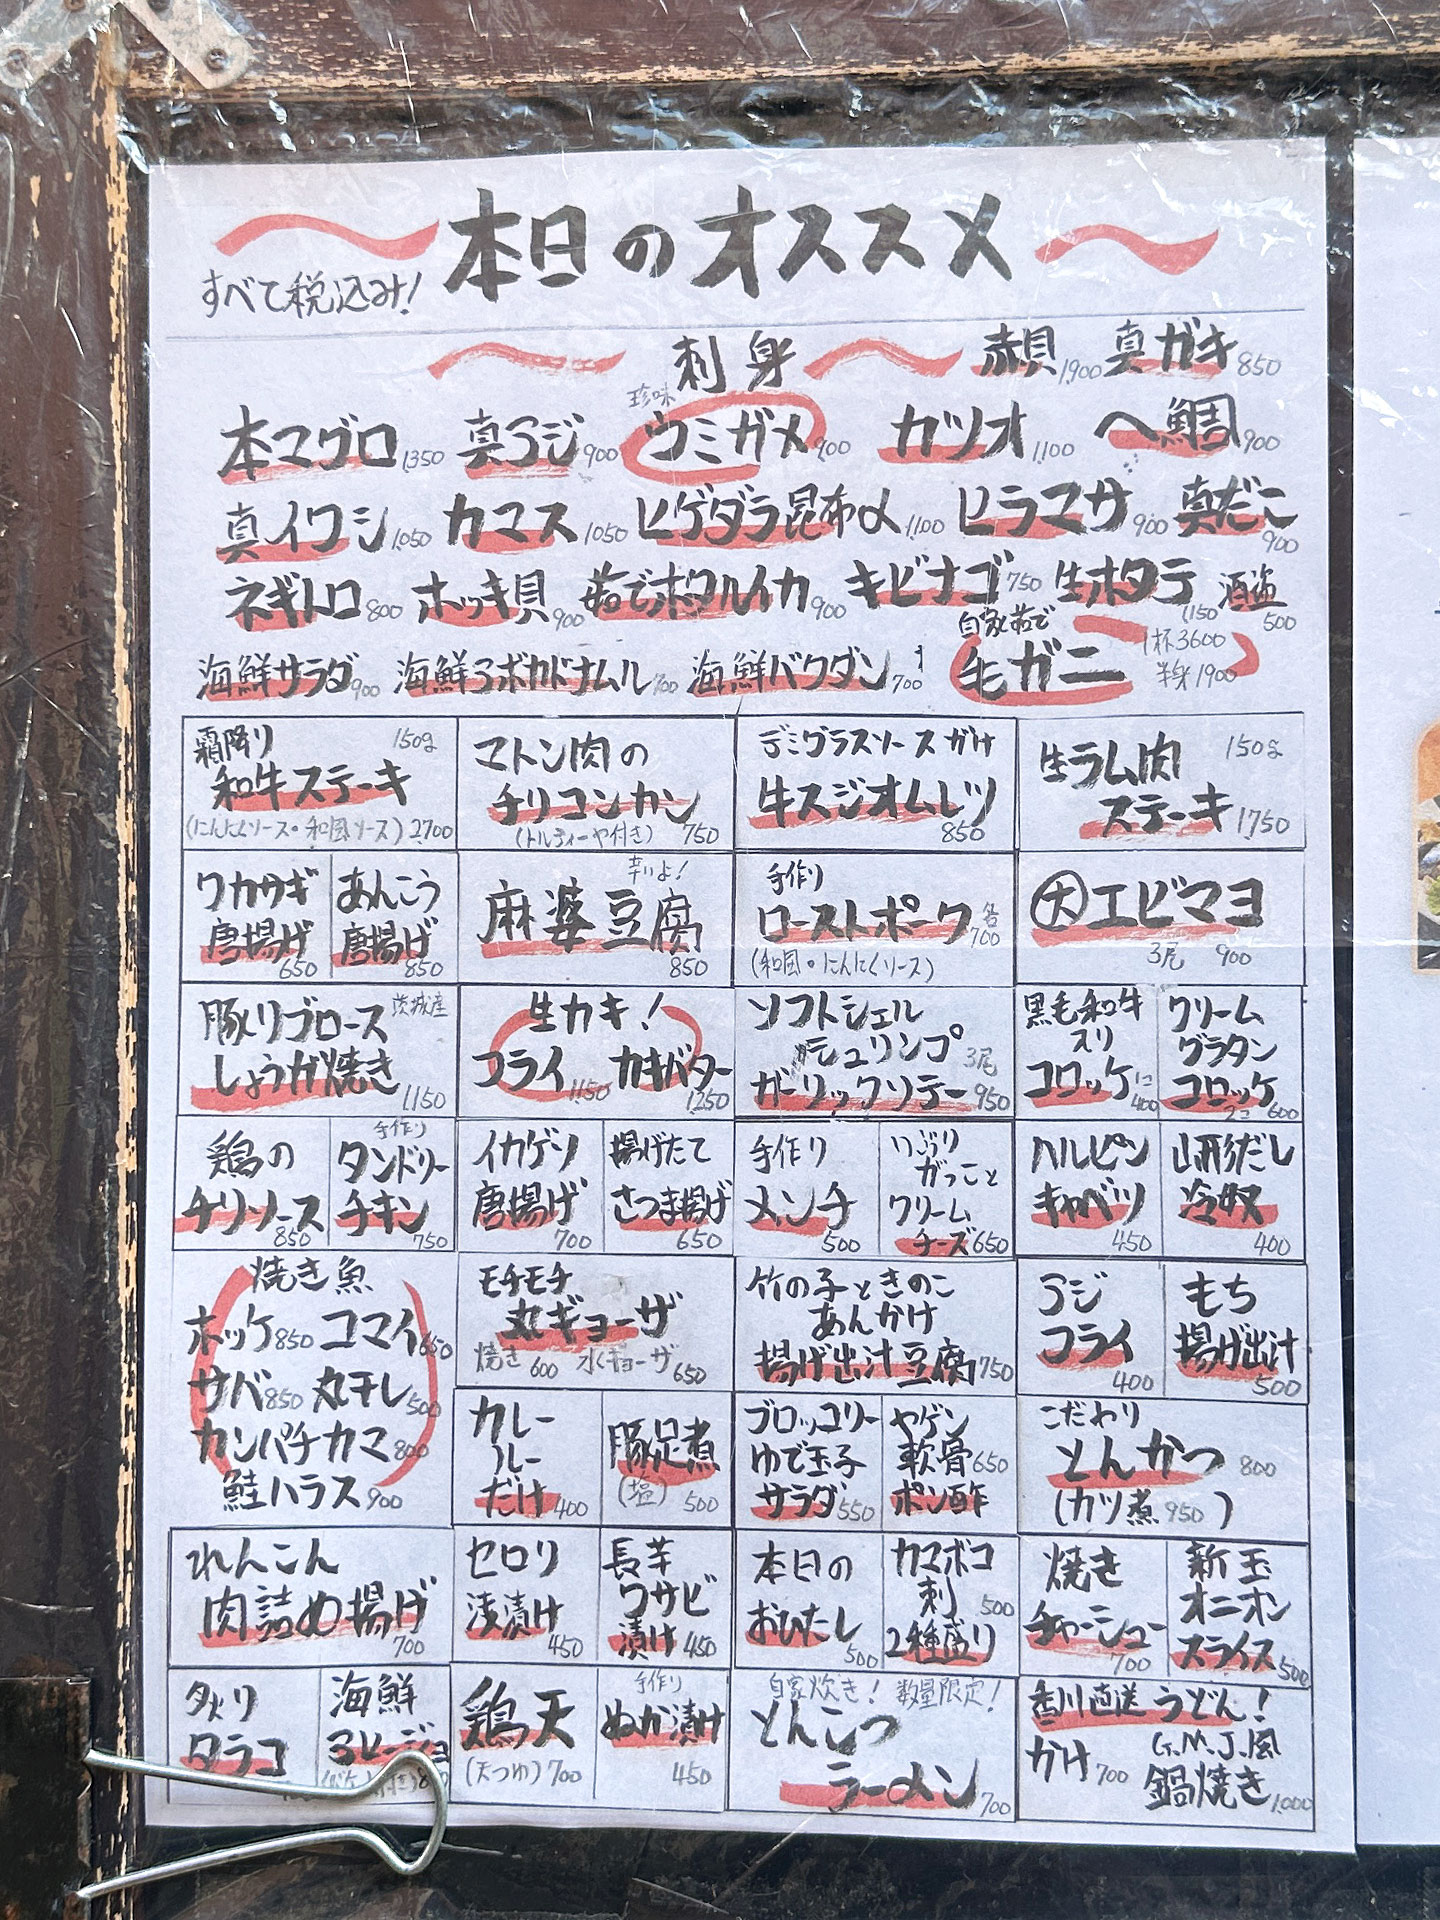 本日のオススメ
すべて税込み!
刺身 赤貝 1,900 真ガキ 850
本マグロ 1350 真アジ 900 珍味 ウミガメ 900 カツオ 1,100 へ鯛 900
真イワシ 1,050 カマス 1050 ヒゲダラ昆布〆 1,100 ヒラマサ 900 真だこ 900
ネギトロ 800 ホッキ貝 900 茹でホタルイカ 900 キビナゴ 750 生ホタテ 1,150 酒盗 500
海鮮サラダ 900 海鮮アボカドナムル 700 海鮮バクダン 700 自家茹で 毛ガニ 1杯3600 半身1900
霜降り 150g
和牛ステーキ
(にんにくソース・和風ソース) 2700
マトン肉の
チリコンカン
(トルティーヤ付き) 750
デミグラスソースがけ
牛スジオムレツ
850
生ラム肉 150g
ステーキ 1750
ワカサギ
唐揚げ
650
あんこう
唐揚げ
850
辛いよ!
麻婆豆腐
850
手作り
ローストポーク 各700
(和風・にんにくソース)
大エビマヨ
3尾 900
豚リブロース 茨城産
しょうが焼き
1150
生カキ!
フライ 1150 カキバター 1,250
ソフトシェル
シュリンプ 3尾
ガーリックソテー 950
黒毛和牛
入り
コロッケ 1コ 400
クリーム
グラタン
コロッケ
2コ 600
鶏の
チリソース
850
手作り
タンドリー
チキン
750
イカゲソ
唐揚げ
700
揚げたて
さつま揚げ
650
手作り
メンチ
500
いぶり
がっこと
クリーム
チーズ 650
アルピン
キャベツ
450
山形だし
冷奴
400
焼き魚
ホッケ 850 コマイ 650
サバ 850 丸干し 500
カンパチカマ 800
鮭ハラス 900
モチモチ
丸ギョーザ
焼き 600 水ギョーザ 650
竹の子ときのこ
あんかけ
揚げ出汁豆腐 750
アジ
フライ
400
もち
揚げ出汁
500
カレー
ルー
だけ 400
豚足煮
(塩) 500
ブロッコリー
ゆで玉子
サラダ 550
ヤゲン
軟骨 650
ポン酢
こだわり
とんかつ 800
(カツ煮 950)
れんこん
肉詰め揚げ
700
セロリ
浅漬け
450
長芋
ワサビ
漬け 450
本日の
おひたし
500
カマボコ
刺 500
2種盛り
焼き
チャーシュー
700
新玉
オニオン
スライス 500
タリ
タラコ
海鮮
アヒージョ
鶏天
(天つゆ) 700
手作り
ぬか漬け
450
自家炊き! 数量限定!
とんこつ
ラーメン 700
香川直送うどん!
かけ 700
G.M.J.風
鍋焼き 1,000